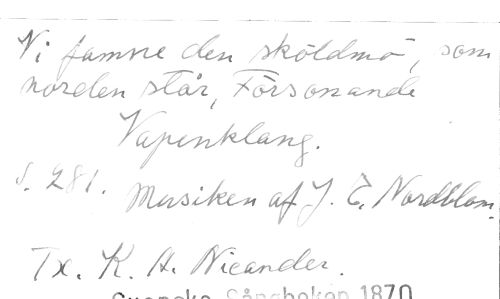 Vi famne den sköldmö, som
norden står, Försonande
Vapenklang.
S. 281. Musiken af J. E. Nordblom.
Tx. K. A. Nicander.
Svenska Sångboken 1870